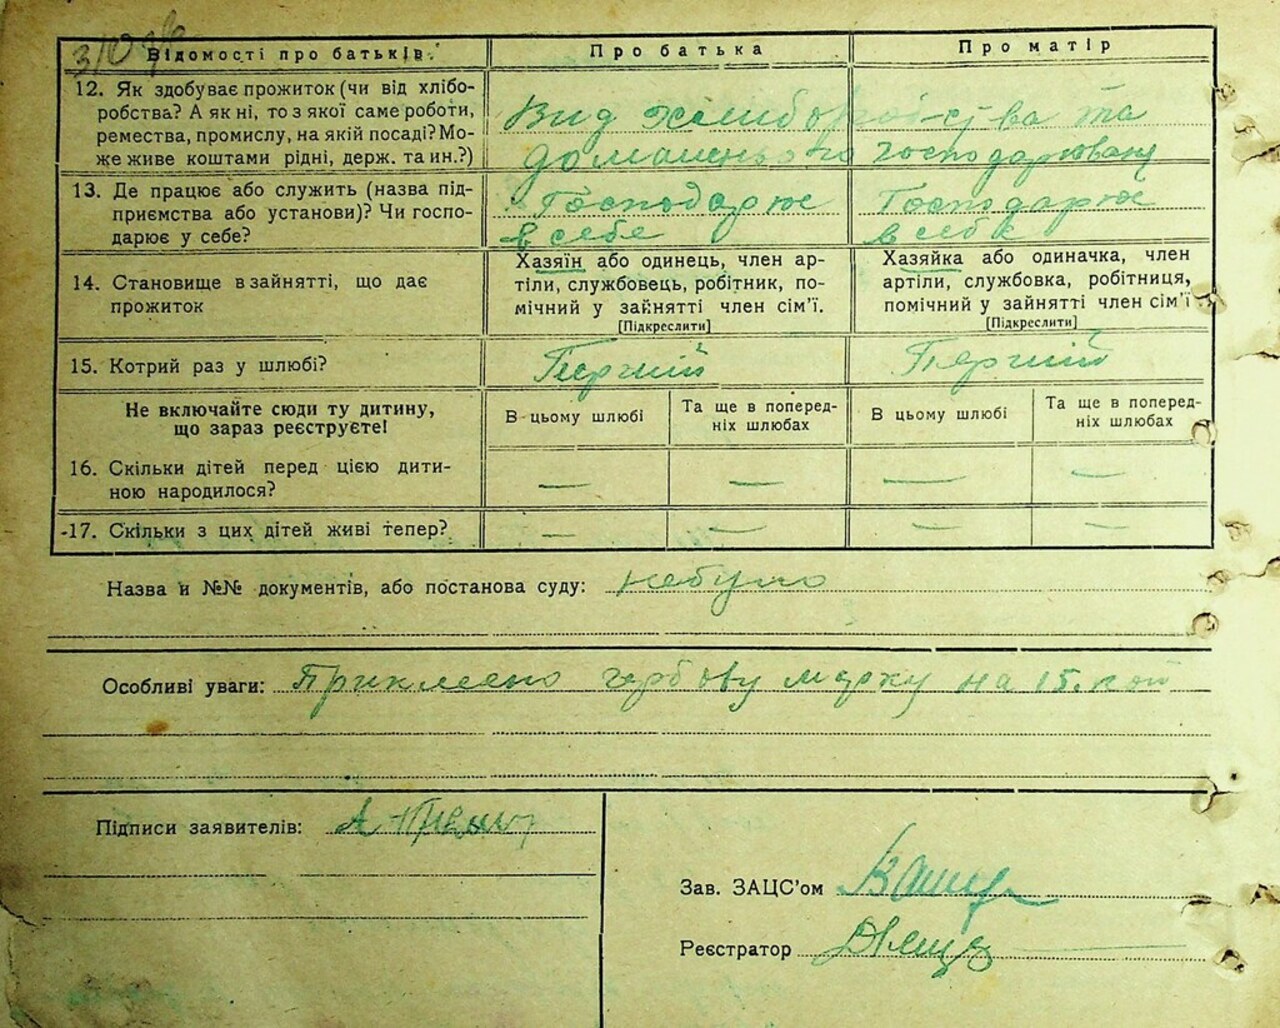 Відомості про батьків. Про батька Про матір
12. Як здобуває прожиток (чи від хлібо-
робства? А як ні, то з якої саме роботи,
ремества, промислу, на якій посаді? Мо-
же живе коштами рідні, держ. та ин.?)
Вид хлиборобства та
домашнього господарюваня
13. Де працює або служить (назва під-
приємства або установи)? Чи госпо-
дарює у себе?
Господарює Господарює
в себе в себе
14. Становище в зайнятті, що дає
прожиток
Хазяїн або одинець, член ар-
тіли, службовець, робітник, по-
мічний у зайнятті член сім'ї.
[Підкреслити]
Хазяйка або одиначка, член
артіли, службовка, робітниця,
помічний у зайнятті член сім'ї
[Підкреслити]
15. Котрий раз у шлюбі? Перший Перший
Не включайте сюди ту дитину,
що зараз реєструєте!
В цьому шлюбі
Та ще в поперед-
ніх шлюбах
В цьому шлюбі
Та ще в поперед-
ніх шлюбах
16. Скільки дітей перед цією дити-
ною народилося?
— — — —
17. Скільки з цих дітей живі тепер? — — — —
Назва и №№ документів, або постанова суду: небуло
Особливі уваги: Приклеено гербову марку на 15. коп
Підписи заявителів:
Зав. ЗАЦС'ом
Реєстратор